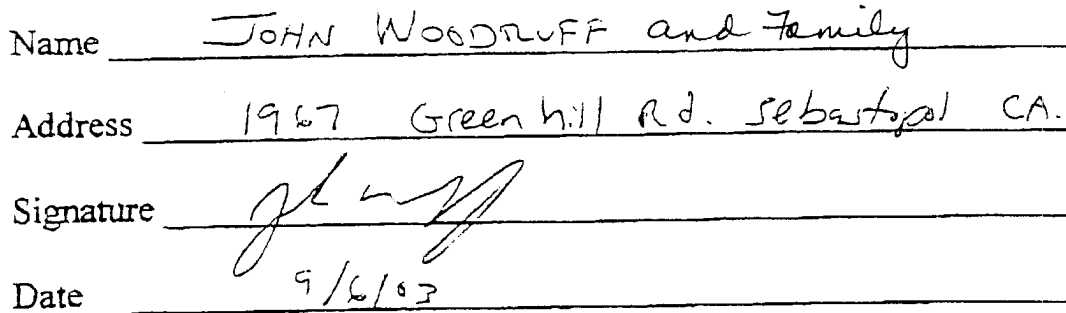 Name JOHN WOODRUFF and Family
Address 1967 Greenhill Rd. Sebastopol CA.
Signature
Date 9/6/03